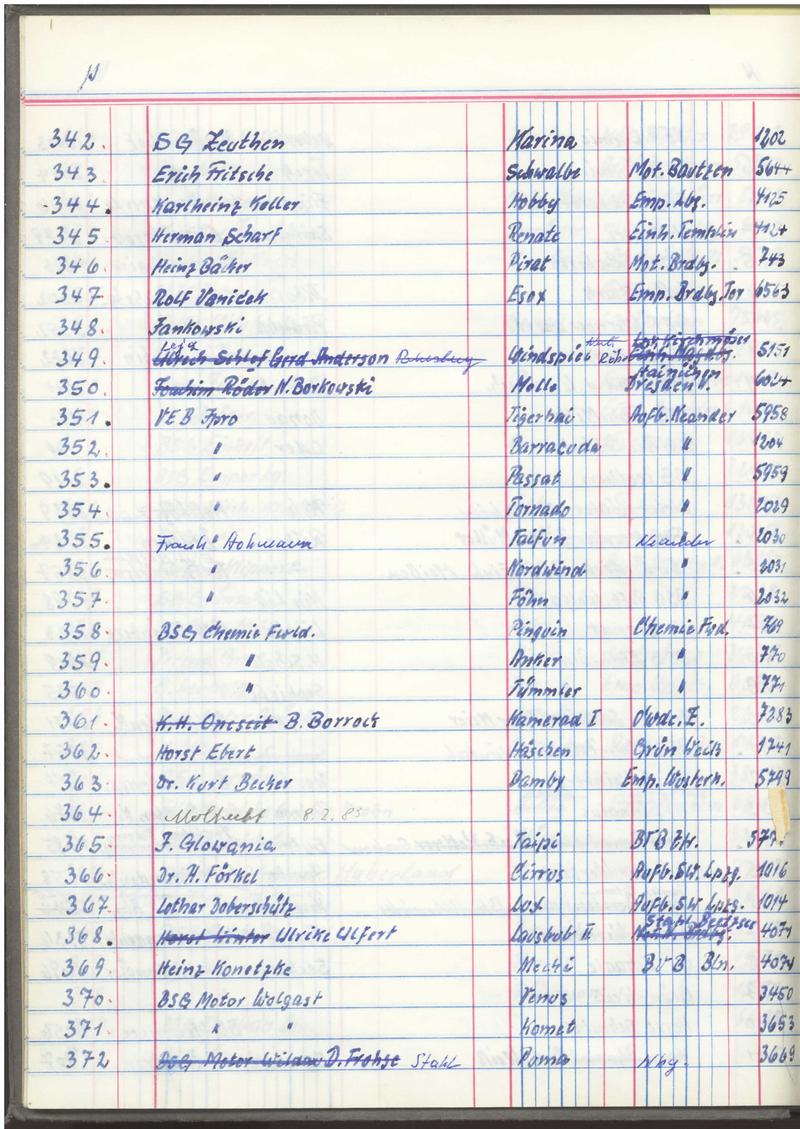 342. SG Zeuthen Karina 1202
343. Erich Fritsche Schwalbe Mot. Bautzen 5644
344. Karlheinz Keller Hobby Emp. Lbg. 4125
345 Herman Scharf Renate Einh. Templin
346. Heinz Bäker Pirat Mot. Brdbg. 743
347 Rolf Vanicek Esox Emp. Brdbg. Tor 6563
348. Jankowski
349. Ulrich Schlef Gerd Anderson Windspiel Lok Kirchmöser 5151
350. Joachim Röder N. Borkowski Molle Hainichen Dresden 6024
351. VEB Ipro Tigerhai Aufb. Neander 5958
352. " Barracuda " 1204
353. " Passat " 5959
354. " Tornado " 2029
355. Frank " Hohmann Taifun Neander " 2030
356. " Nordwind " 2031
357. " Föhn " 2032
358. BSG Chemie Fwld. Pinguin Chemie Fwd. 769
359. " Anker " 770
360. " Tümmler " 771
361. B. Borrock Kamerad I 7283
362. Horst Ebert Häschen Grün Weiß 1741
363. Dr. Kurt Becker Damby Emp. Wustern. 5799
364 8.2.83
365. F. Glowania Taipi BVB
366. Dr. H. Förkel Cirrus Aufb. SW. Lpzg. 1016
367. Lothar Doberschütz Aufb. SW. Lpzg. 1014
368. Horst Winter Ulrike Ulfert Lausbub II Stahl 4071
369. Heinz Konetzke Mecki BVB Bln. 4074
370. BSG Motor Wolgast Venus 3450
371. " " Komet 3653
372 BSG Motor Wildau D. Frohse Stahl Puma Nbg. 3669